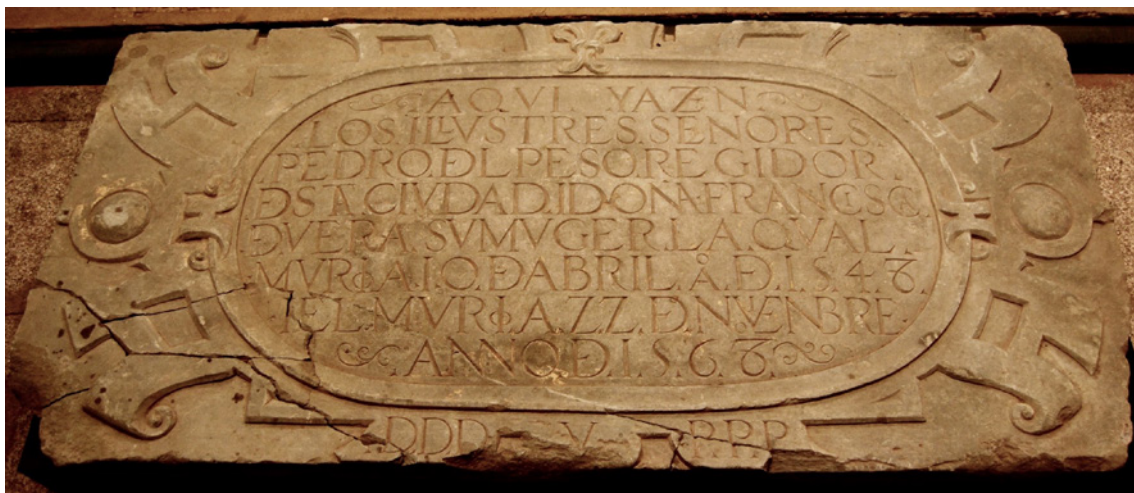 AQVI YAZEN
LOS.ILLVSTRES.SENORES.
PEDRO.ÐL PESO.REGIDOR
ÐSTA.CIVDAD.I.DONA.FRANCISCA.
ÐVERA.SVMVGER.LA.QVAL.
MVRIO.A.I.O.ÐABRIL.Å.Ð.I.S.4.
IEL.MVRIO.A.Z.Z.Ð.NOVENBRE.
.ANNO.Ð.I.S.6.
DDD V P.P.P.